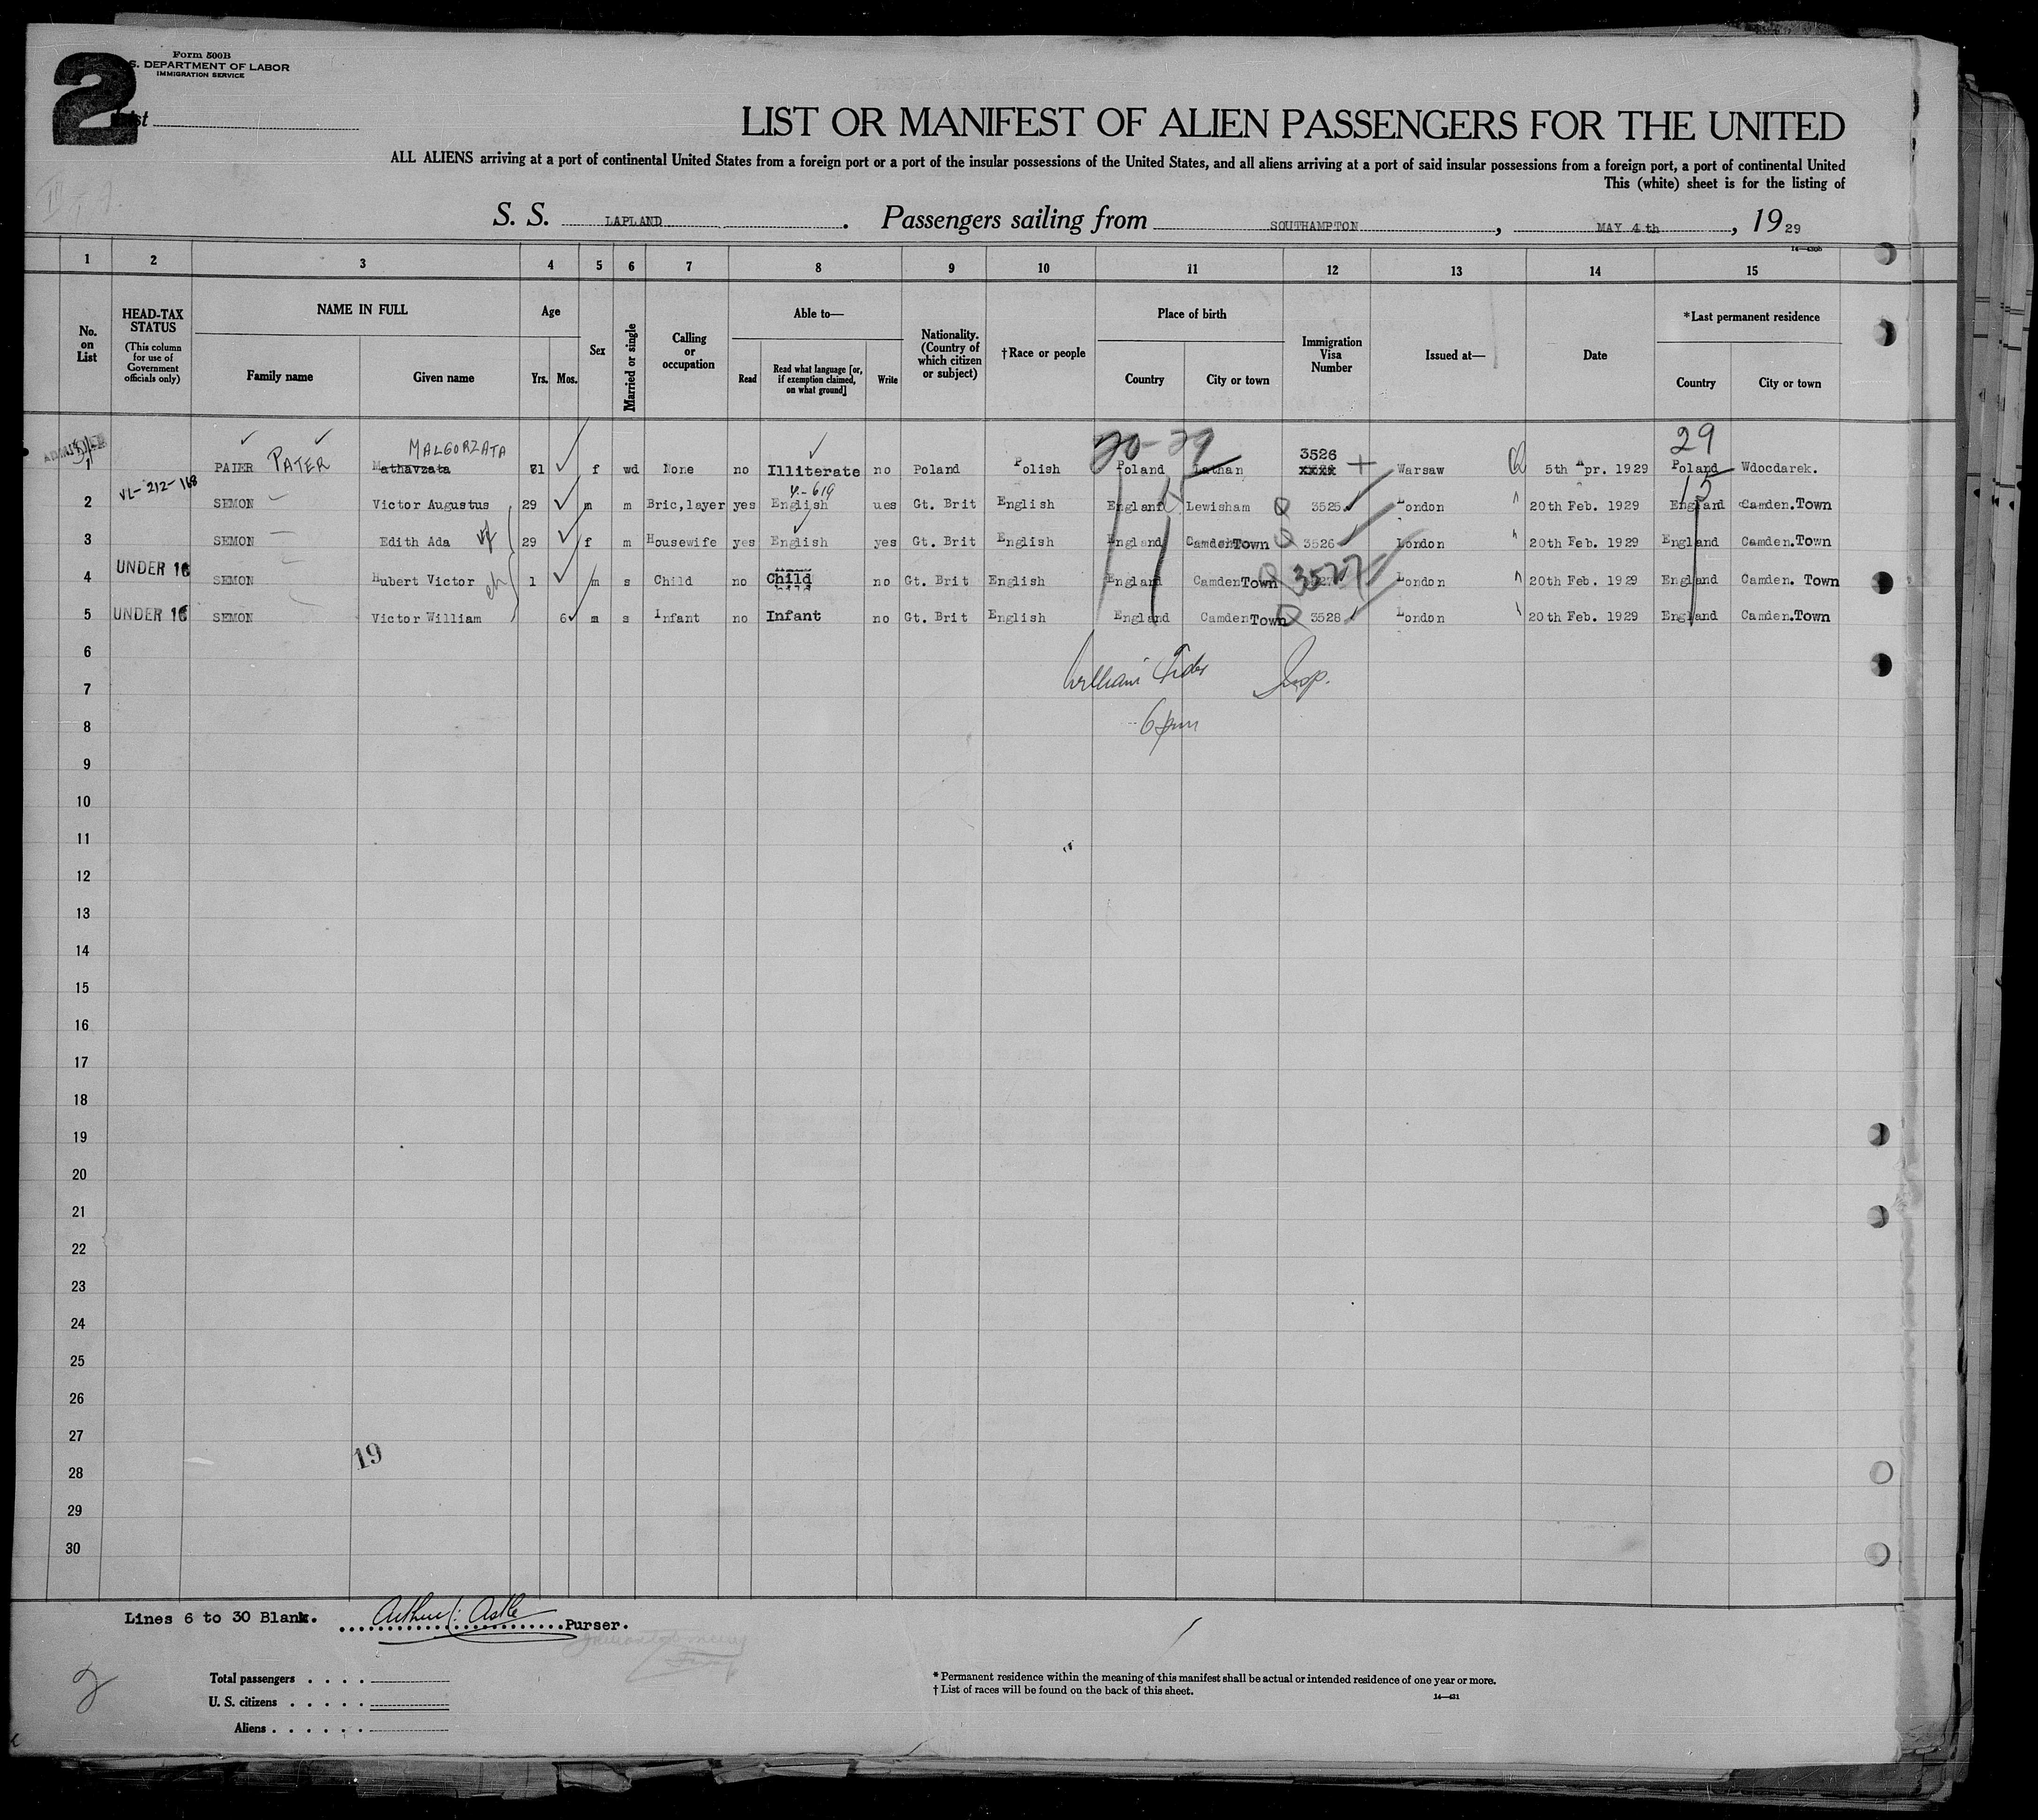 2
Form 500B
S. DEPARTMENT OF LABOR
IMMIGRATION SERVICE
List
LIST OR MANIFEST OF ALIEN PASSENGERS FOR THE UNITED
ALL ALIENS arriving at a port of continental United States from a foreign port or a port of the insular possessions of the United States, and all aliens arriving at a port of said insular possessions from a foreign port, a port of continental United
This (white) sheet is for the listing of
S. S. LAPLAND. Passengers sailing from SOUTHAMPTON, MAY 4th, 1929
1 2 3 4 5 6 7 8 9 10 11 12 13 14 15
No. on List
HEAD-TAX STATUS (This column for use of Government officials only)
NAME IN FULL Family name Given name
Age Yrs. Mos.
Sex
Married or single
Calling or occupation
Able to— Read Read what language [or, if exemption claimed, on what ground] Write
Nationality. (Country of which citizen or subject)
†Race or people
Place of birth Country City or town
Immigration Visa Number
Issued at—
Date
*Last permanent residence Country City or town
MALGORZATA 20-29 3526 29
1 PAIER PATER Mathavzata 81 f wd None no Illiterate no Poland Polish Poland Lathan xxxx Warsaw 5th Apr. 1929 Poland Wdocdarek.
VL-212-168 4-619 15
2 SEMON Victor Augustus 29 m m Bric,layer yes English ues Gt. Brit English England Lewisham 3525 London 20th Feb. 1929 England Camden.Town
3 SEMON Edith Ada wf 29 f m Housewife yes English yes Gt. Brit English England CamdenTown 3526 London 20th Feb. 1929 England Camden.Town
4 UNDER 16 SEMON Hubert Victor ch 1 m s Child no Child no Gt. Brit English England CamdenTown 3527 London 20th Feb. 1929 England Camden. Town
5 UNDER 16 SEMON Victor William 6 m s Infant no Infant no Gt. Brit English England CamdenTown 3528 London 20th Feb. 1929 England Camden.Town
6
William Insp.
7
8
9
10
11
12
13
14
15
16
17
18
19
20
21
22
23
24
25
26
27
19
28
29
30
Lines 6 to 30 Blank. Arthur C. Astle Purser.
2
Total passengers
U. S. citizens
Aliens
* Permanent residence within the meaning of this manifest shall be actual or intended residence of one year or more.
† List of races will be found on the back of this sheet.
14—431